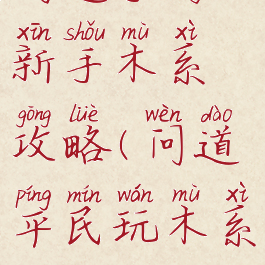 xīn shǒu mù xì
新手木系
gōng lüè wèn dào
攻略(问道
píng mín wán mù xì
平民玩木系